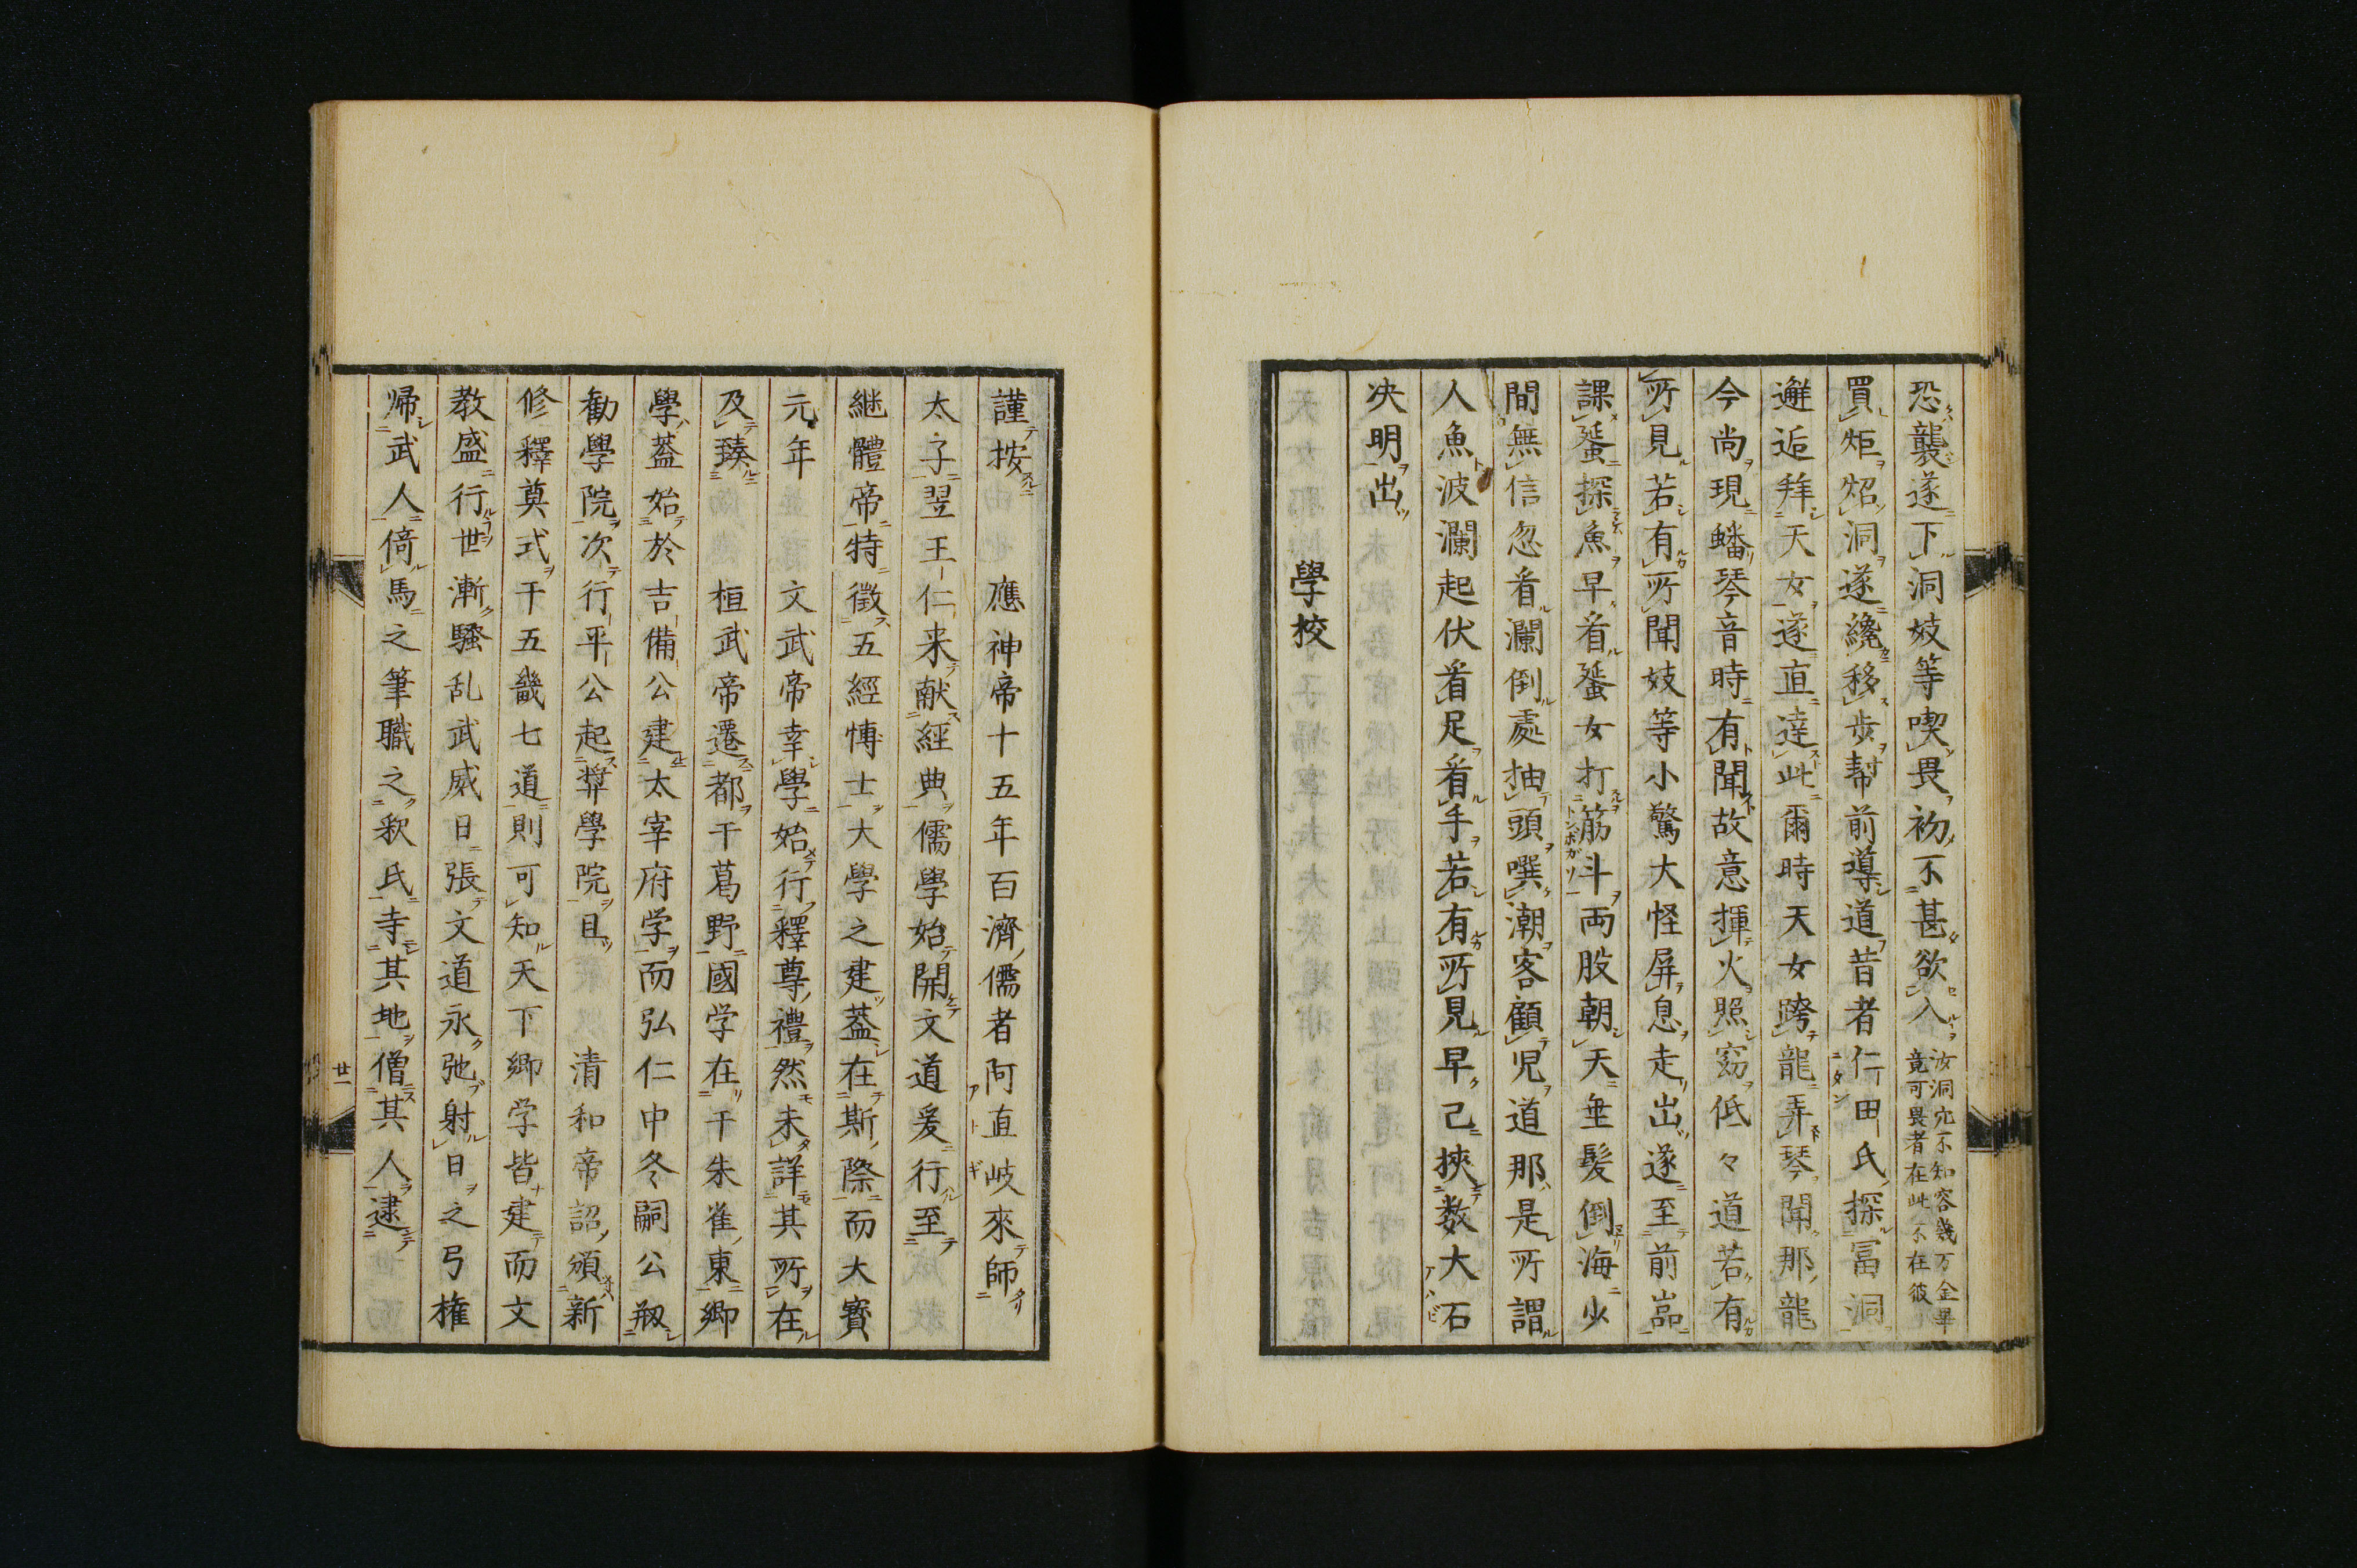 恐襲遂下洞妓等喫畏初不甚欲入汝洞穴不知容幾万金畢
竟可畏者在此不在彼
買炬炤洞遂纔移歩幇前導道昔者仁田氏探冨洞
邂逅拜天女遂直達此爾時天女跨龍弄琴聞那龍
今尚現蟠琴音時有聞故意揮火照窈低々道若有
所見若有所聞妓等小驚大怪屏息走出遂至前嵓
課蜑探魚早看蜑女打筋斗両股朝天垂髮倒海少
間無信忽看瀾倒處抽頭噀潮客顧児道那是所謂
人魚波瀾起伏看足看手若有所見早已挾数大石
决明出
學校
謹按應神帝十五年百濟儒者阿直岐來師
太子翌王仁来献經典儒學始開文道爰行至
継體帝特徴五經博士大學之建葢在斯際而大寳
元年文武帝幸學始行釋尊禮然未詳其所在
及瑧桓武帝遷都于葛野國学在于朱雀東郷
學葢始於吉備公建太宰府学而弘仁中冬嗣公剏
勧學院次行平公起弉學院且清和帝詔頒新
修釋奠式于五畿七道則可知天下郷学皆建而文
教盛行世漸騒乱武威日張文道永弛射日之弓権
帰武人倚馬之筆職之釈氏寺其地僧其人逮
廿一